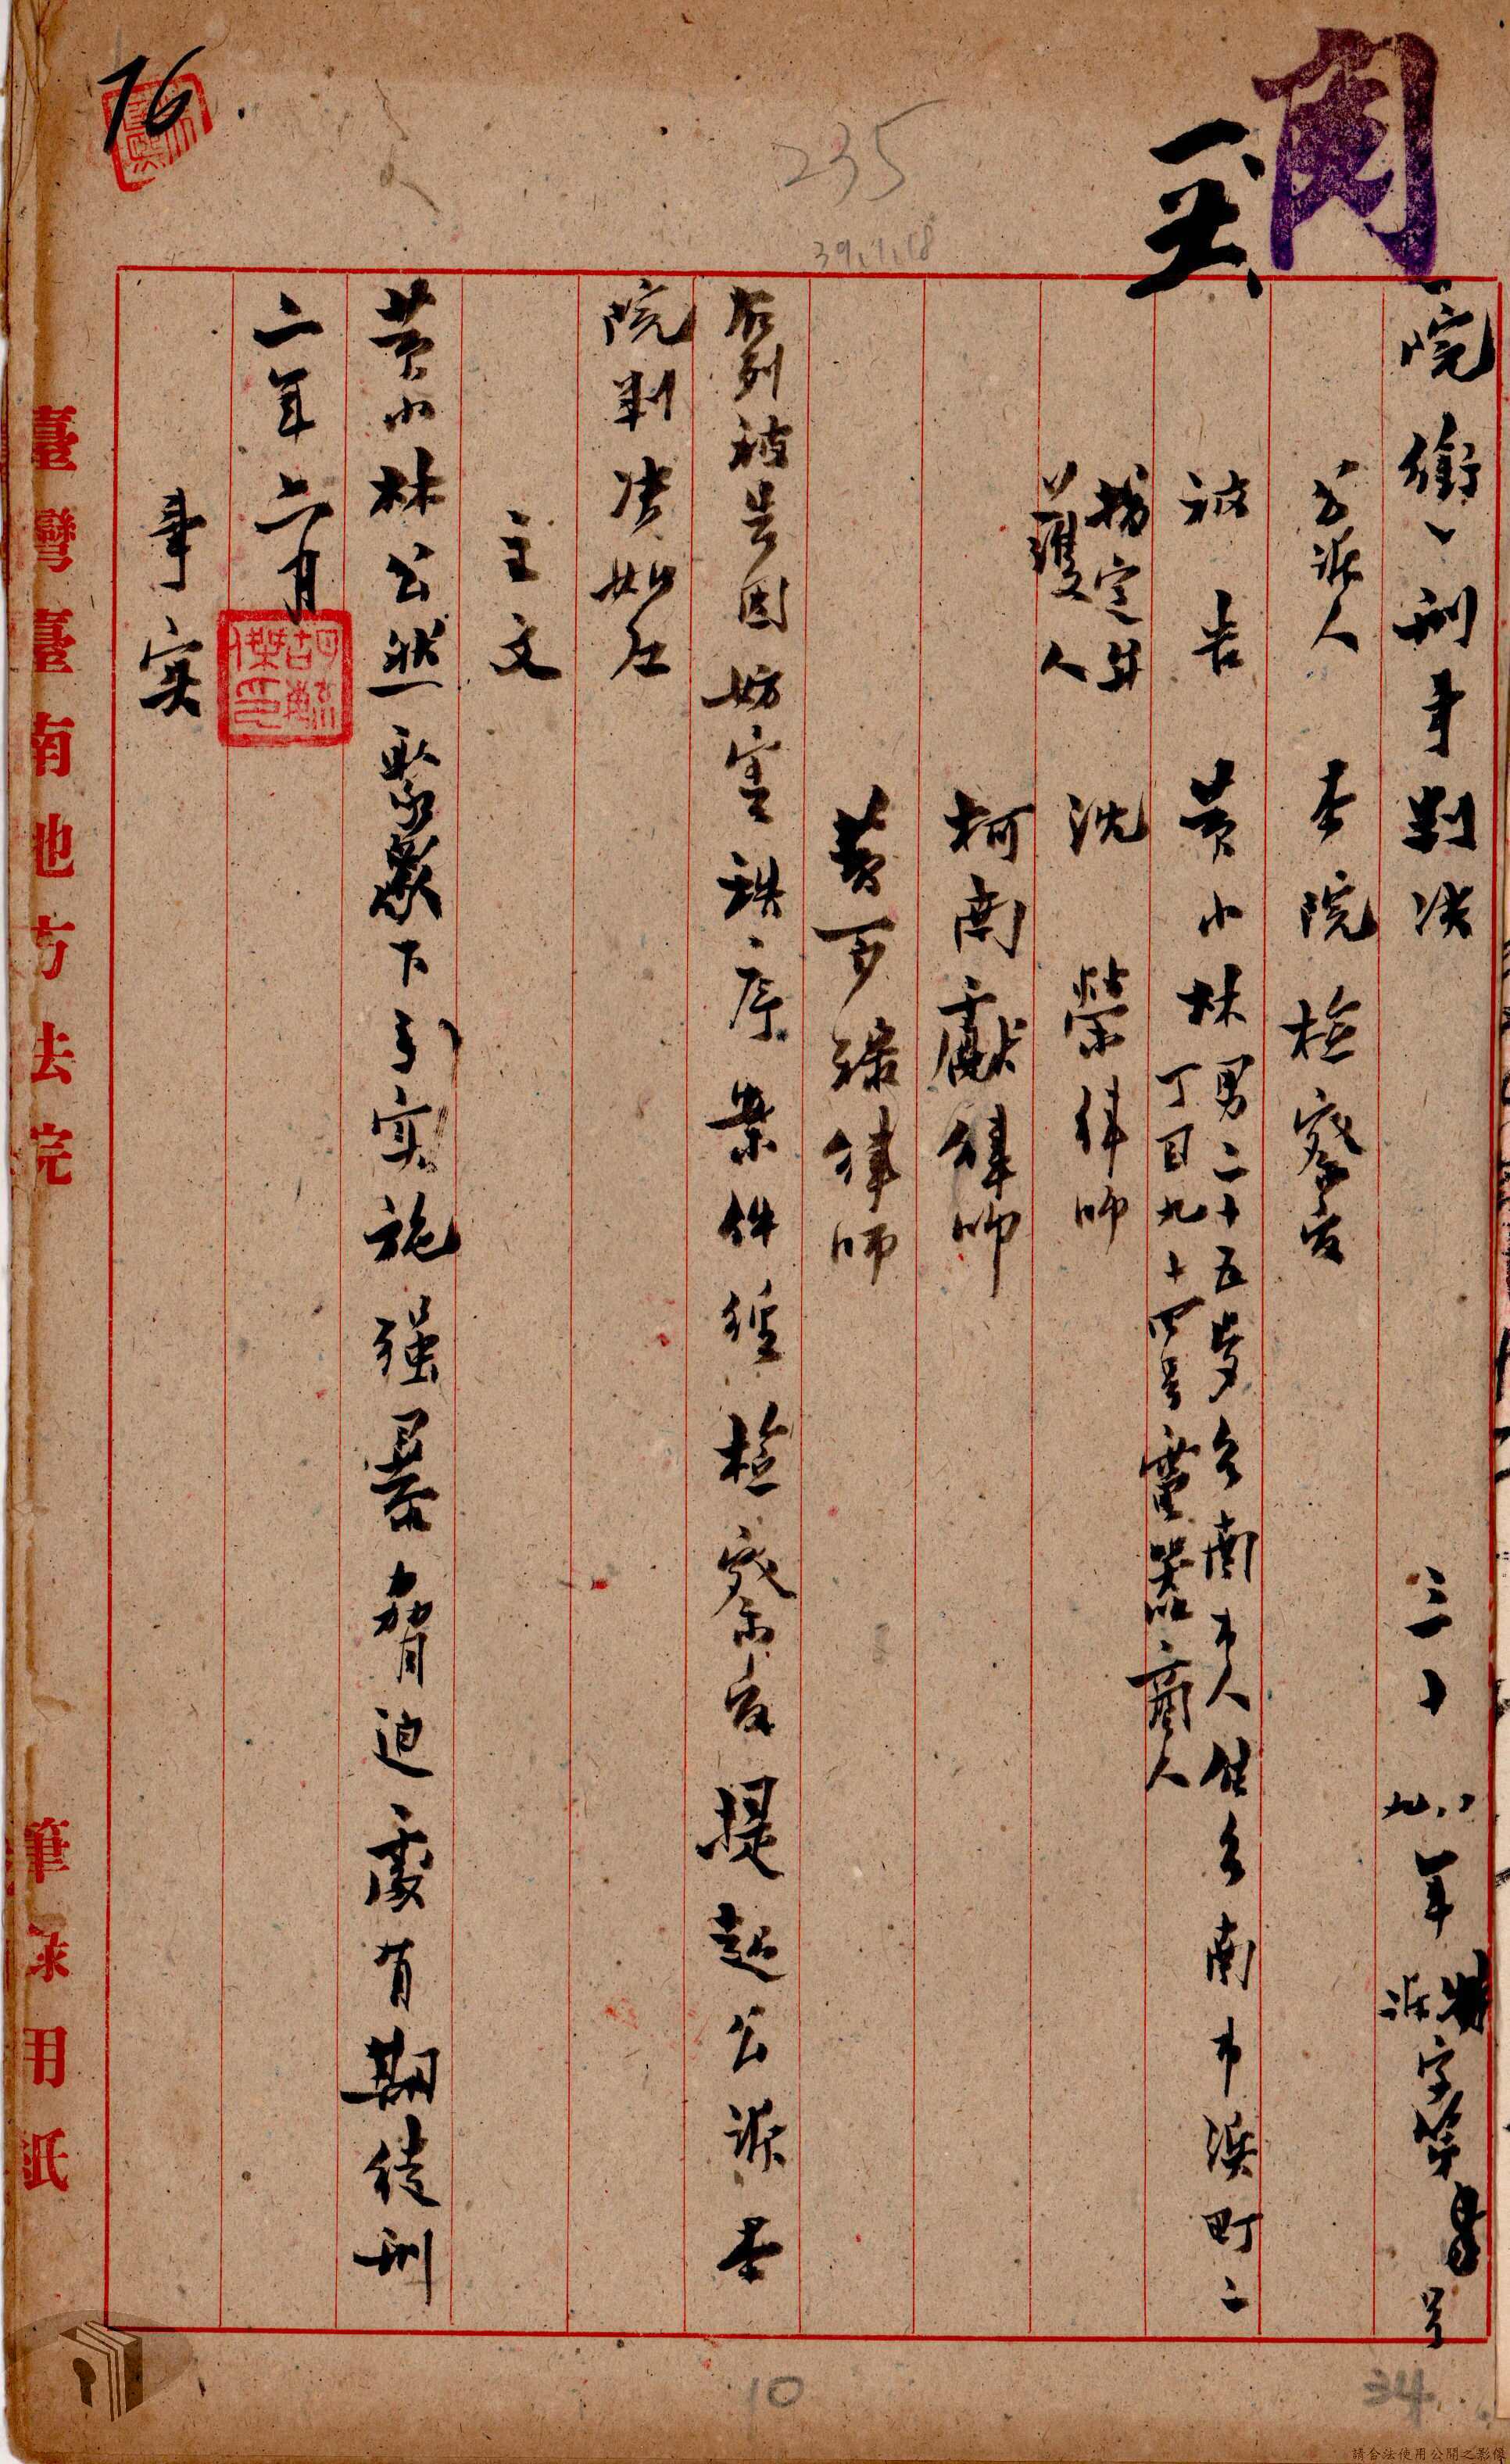 院銜、刑事判決　三十八年訴字第号
公訴人　本院檢察官
被告　黃小林　男二十五歲台南市人住台南市濱町二
丁目九十四号電器商人
指定辯
護人　沈榮律師
柯南獻律師
黃百祿律師
右列被告因妨害秩序案件經檢察官提起公訴本
院判決如左
主文
黃小林公然聚眾下手实施强暴脅迫處有期徒刑
二年六月
事实
臺灣臺南地方法院　筆錄用紙
76
235
39.1.18
10
34
請合法使用公開之影像